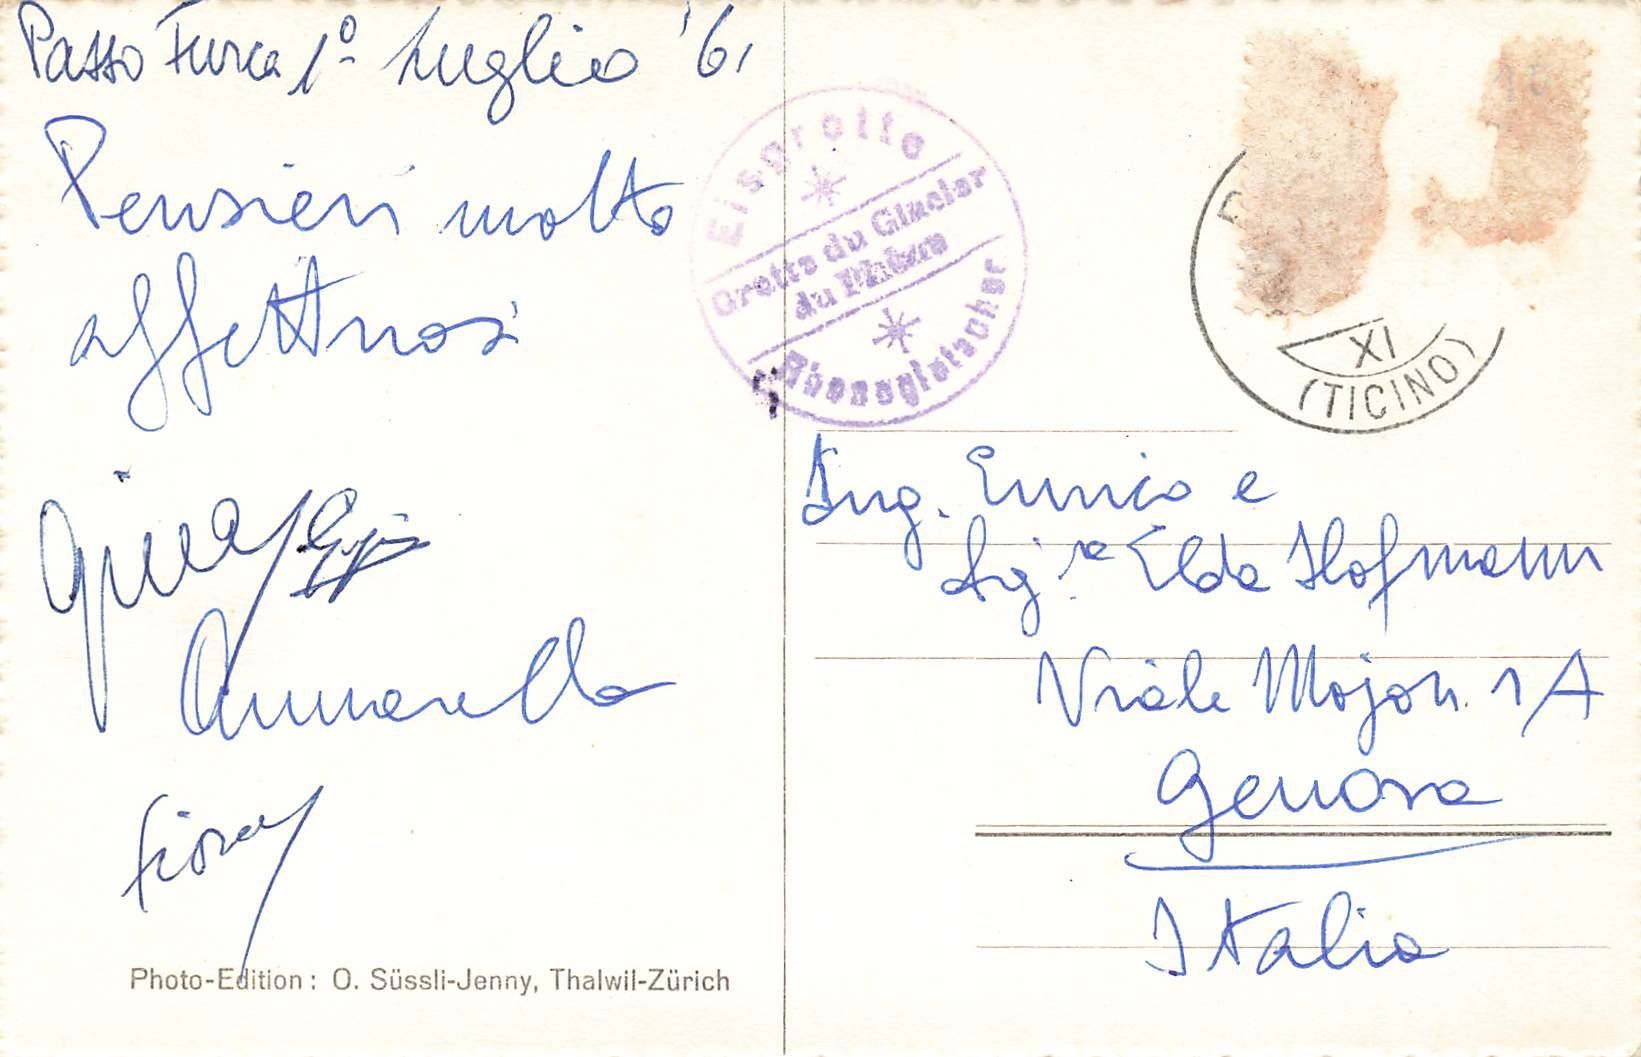 Passo Furca 1º Luglio '61
Pensieri molto
affettuosi
Gina
Annarella
Fiora
Photo-Edition: O. Süssli-Jenny, Thalwil-Zürich
Eisgrotte
Grotte du Glacier
du Rhône
Rhonegletscher
XI
(TICINO)
Ing. Enrico e
Sig.ra Elda Hofmann
Viale Mojon 1A
Genova
Italia